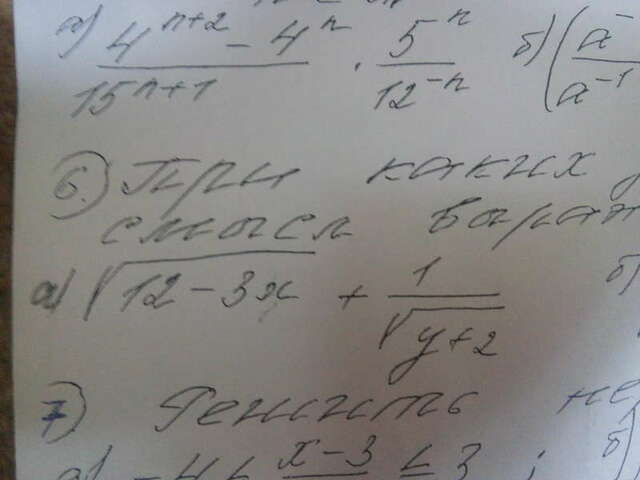 а) (4^(n+2) − 4^n)/15^(n+1) · 5^n/12^(−n) б) (a^−/a^−1
6.) При каких
смысл
а) √(12 − 3x) + 1/√(y+2) б)
7) Решить не
а) −4 ≤ (x−3)/ ≤ 3 ; б)